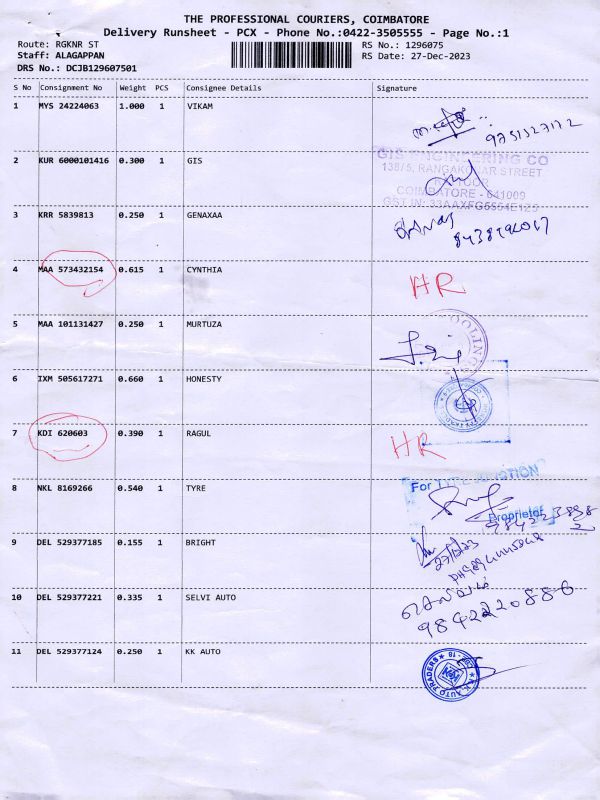 THE PROFESSIONAL COURIERS, COIMBATORE
Delivery Runsheet - PCX - Phone No.:0422-3505555 - Page No.:1
Route: RGKNR ST
Staff: ALAGAPPAN
DRS No.: DCJB129607501
RS No.: 1296075
RS Date: 27-Dec-2023
S No Consignment No Weight PCS Consignee Details Signature
1 MYS 24224063 1.000 1 VIKAM
2 KUR 6000101416 0.300 1 GIS
GIS ENGINEERING CO
138/5, RANGAKONAR STREET
COIMBATORE - 641009
3 KRR 5839813 0.250 1 GENAXAA
4 MAA 573432154 0.615 1 CYNTHIA HR
5 MAA 101131427 0.250 1 MURTUZA
6 IXM 505617271 0.660 1 HONESTY
7 KDI 620603 0.390 1 RAGUL HR
8 NKL 8169266 0.540 1 TYRE
For TYRE JUNCTION
Proprietor
9 DEL 529377185 0.155 1 BRIGHT
10 DEL 529377221 0.335 1 SELVI AUTO
9842220886
11 DEL 529377124 0.250 1 KK AUTO